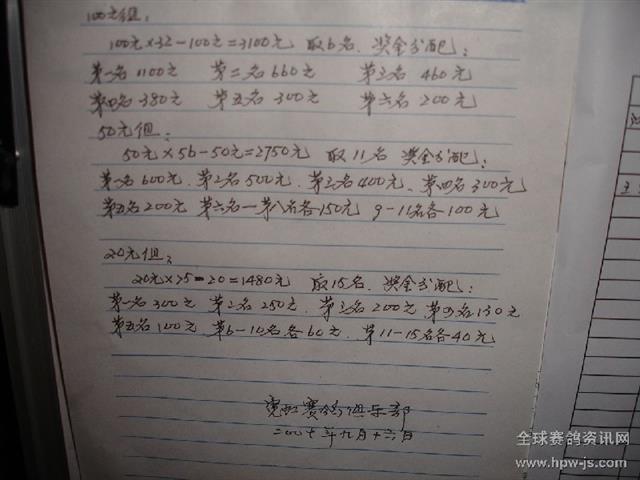 100元组:
100元×32-100元=3100元 取6名.奖金分配:
第一名1100元 第二名660元 第三名460元
第四名380元 第五名300元 第六名200元
50元组:
50元×56-50元=2750元 取11名 奖金分配:
第一名600元.第2名500元.第三名400元、第四名300元
第五名200元 第六名—第八名各150元 9-11名各100元
20元组:
20元×75-20=1480元 取15名.奖金分配:
第一名300元 第二名250元.第三名200元.第四名130元
第五名100元 第6-10名各60元.第11-15名各40元
赛鸽俱乐部
二00七年九月十六日
全球赛鸽资讯网
www.hpw-js.com